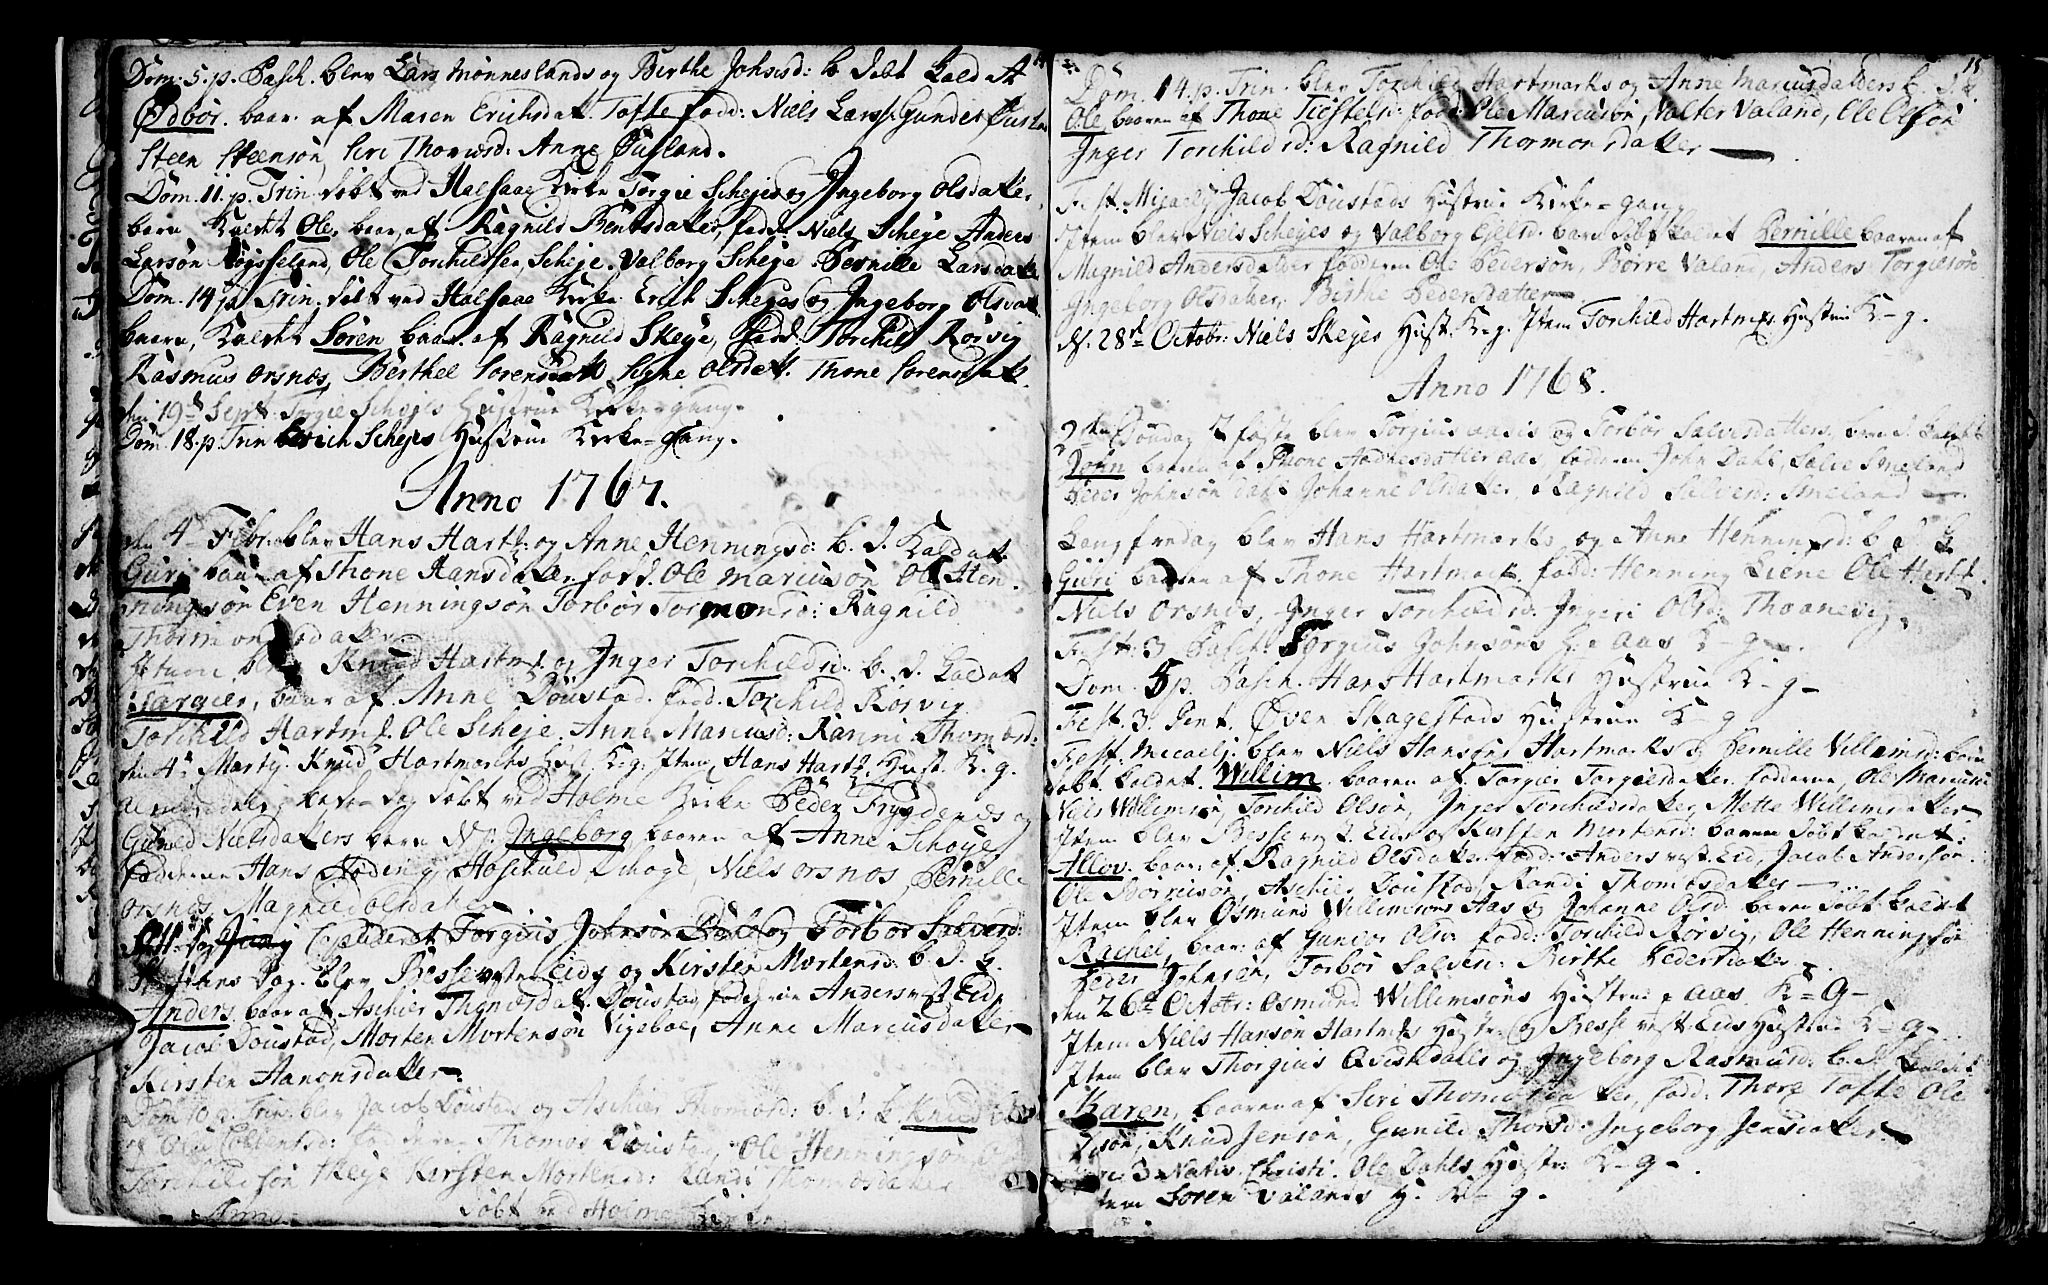 Dom. 5. p. Pasch. blev Lars Mønneslands og Birthe Johsd: b. døbt kaldet
Ødbor. baar. af Maren Erichsdat. Tofte fadd: Niels Larss. Gunder
Steen Steensøn, Siri Thomasd: Anne
Dom. 11. p. Trin. døbt ved Halsaae Kirke Torgie Schejes og Ingeborg Olsdatte
barn kaldet Ole, baar. af Ragnild Bentsdatter, fadd: Niels Scheje Anders
Larsøn Ole Torchildsen Scheje. Valborg Scheje Pernille Larsdatte
Dom. 14 p. Trin. døbt ved Halsaae Kirke Erich Schejes og Ingeborg Olsdatt.
baarn, kaldet Søren baar. af Ragnild Skeje, fadd. Torchild Rørvig
Rasmus Orsnes, Berthel Sørensdatt Signe Olsdatt. Thone Sørensdatt
den 19de Sept. Torgie Schejes Hustrue Kirke-gang.
Dom. 18. p. Trin Erich Schejes Hustrue Kirke-gang.
Anno 1767.
den 4de Febr: blev Hans Hartk: og Anne Henningsd: b. d. kaldet
Guri baar. af Thone Hansdatter fadd. Ole Mariusøn Ole Hen
ningsøn Even Henningsøn Torbor Tormonsd: Ragnild
Thormonsdatter
Item blev Knud Hartm. og Inger Torchildsd: b. d. kaldet
Targier, baar af Anne Doustad. fadd. Torchild Rørvig
Torchild Hartm. Ole Scheje. Anne Marcusd: Ranni Thomasd:
den 4de Martij. Knud Hartmarks Hust. K. g. Item Hans Hartk. Hust. K. g.
Almindelig bede-dag døbt ved Holme Kirke Peder Frysdenes og
Gunild Nielsdatters barn N: Ingeborg baaren af Anne Schøje
fadderne Hans Nøding, Hoskuld Schøge, Niels Orsnos, Pernille
Orsnes Magnild Olsdatter
Copuleret Torgius Johnsøn Dahl og Torbor Salvesd:
St. Hans Dag. blev Besse vestre Eids og Kirsten Mortensd: b. d. k.
Anders. baar af Aschier Thomasdat. Doustad, fadderne Anders vest Eid,
Jacob Doustad, Morten Mortensøn Vigeboe, Anne Marcusdatter
Kirsten Aanonsdatter.
Dom 10. p. Trin. blev Jacob Doustads og Aschier Thomasd: b. d. k. Knud
af Olau fadderne Thomas Doustad, Ole Henningsøn
Torchildsøn Skeje Kirsten Mortensd: Randi Thomasdatter
Anno døbt ved Holme Kirke
15
Dom. 14. p. Trin. blev Torchild Hartmarks og Anne Marcusdatters b. d. k.
Ole baaren af Thone fadd: Ole Marcusøn, Valter Valand, Ole Olsøn
Inger Torchildsd: Ragnild Thormonsdatter
Fest. Micaelis Jacob Doustads Hustrue Kirke-gang
Item blev Niels Schejes og Valborg barn døbt kaldet Pernille baaren af
Magnild Andersdatter fadderne Ole Pedersøn, Børre Valand, Anders Torgiesøn
Ingeborg Olsdatter, Birthe Pedersdatter
d. 28de Octobr: Niels Skejes Hust. K-g. Item Torchild Hartm. Hustrue K-g.
Anno 1768.
2den Søndag i faste blev Torgius Aasis og Torbor Salvesdatters barn d. kaldet
John baaren af Thone Aas, fadderne John Dahl, Salve Smeland
Peder Johnsøn Dahl Johanne Olsdatter, Ragnild Salvesd: Smeland
Langfredag blev Hans Hartmarks og Anne Henningsd: b d. k.
Guri baaren af Thone Hartmark. fadd: Henning Liene Ole Hartk
Niels Orsnes, Inger Torchildsd. Ingeri Olsd: Thoanevig.
Fest. 3 Pasch. Torgius Johnsøns H. Aas K-g
Dom. 5 p. Pasch. Hans Hartmarks Hustrue K-g-
Fest. 3. Pent. Øven Skagestads Hustrue K-g
Fest. Micaelj. blev Niels Hansøns Hartmarks og Pernille Villumsd: barn
døbt kaldet. Willim. baaren af Torgier Torgiersdatter fadderne, Ole Marcusøn
Niels Willumsøn, Torchild Olsøn, Inger Torchildsdatter, Mette Willumsdatter
Item blev Besse vest. Eids og Kirsten Mortensd: baaren døbt kaldet:
Allov. baar. af Ragnild Olsdatter fadd: Anders vest. Eid, Jacob Andersøn
Ole Aschier Doustad, Randi Thomasdatter
Item blev Osmund Willumsøns Aas og Johanne Olsd. baren døbt kaldet
Rachel, baar: af Gundor Olsd: fadd: Torchild Rørvig, Ole Henningsøn
Peder Johnsen, Torbor Salvesd: Birthe Pedersdatter.
den 26de Octobr: Osmund Willumsøns Hustru: Aas K-G-
Item Niels Hansøn Hartmarks Hustru og Besse vest. Eids Hustrue K-g-
Item blev Thorgius Qvisledalls og Ingeborg Rasmusd: b. d. kaldet
Karen, baaren af Siri Thomasdatter, fadd: Thore Tofte Ole
Knud Jensøn, Gunild Thorsd: Ingeborg Jensdatter.
3 Nativ. Christi. Ole Dahls Hustr: K-g-.
Item Søren Valands H. K-g.